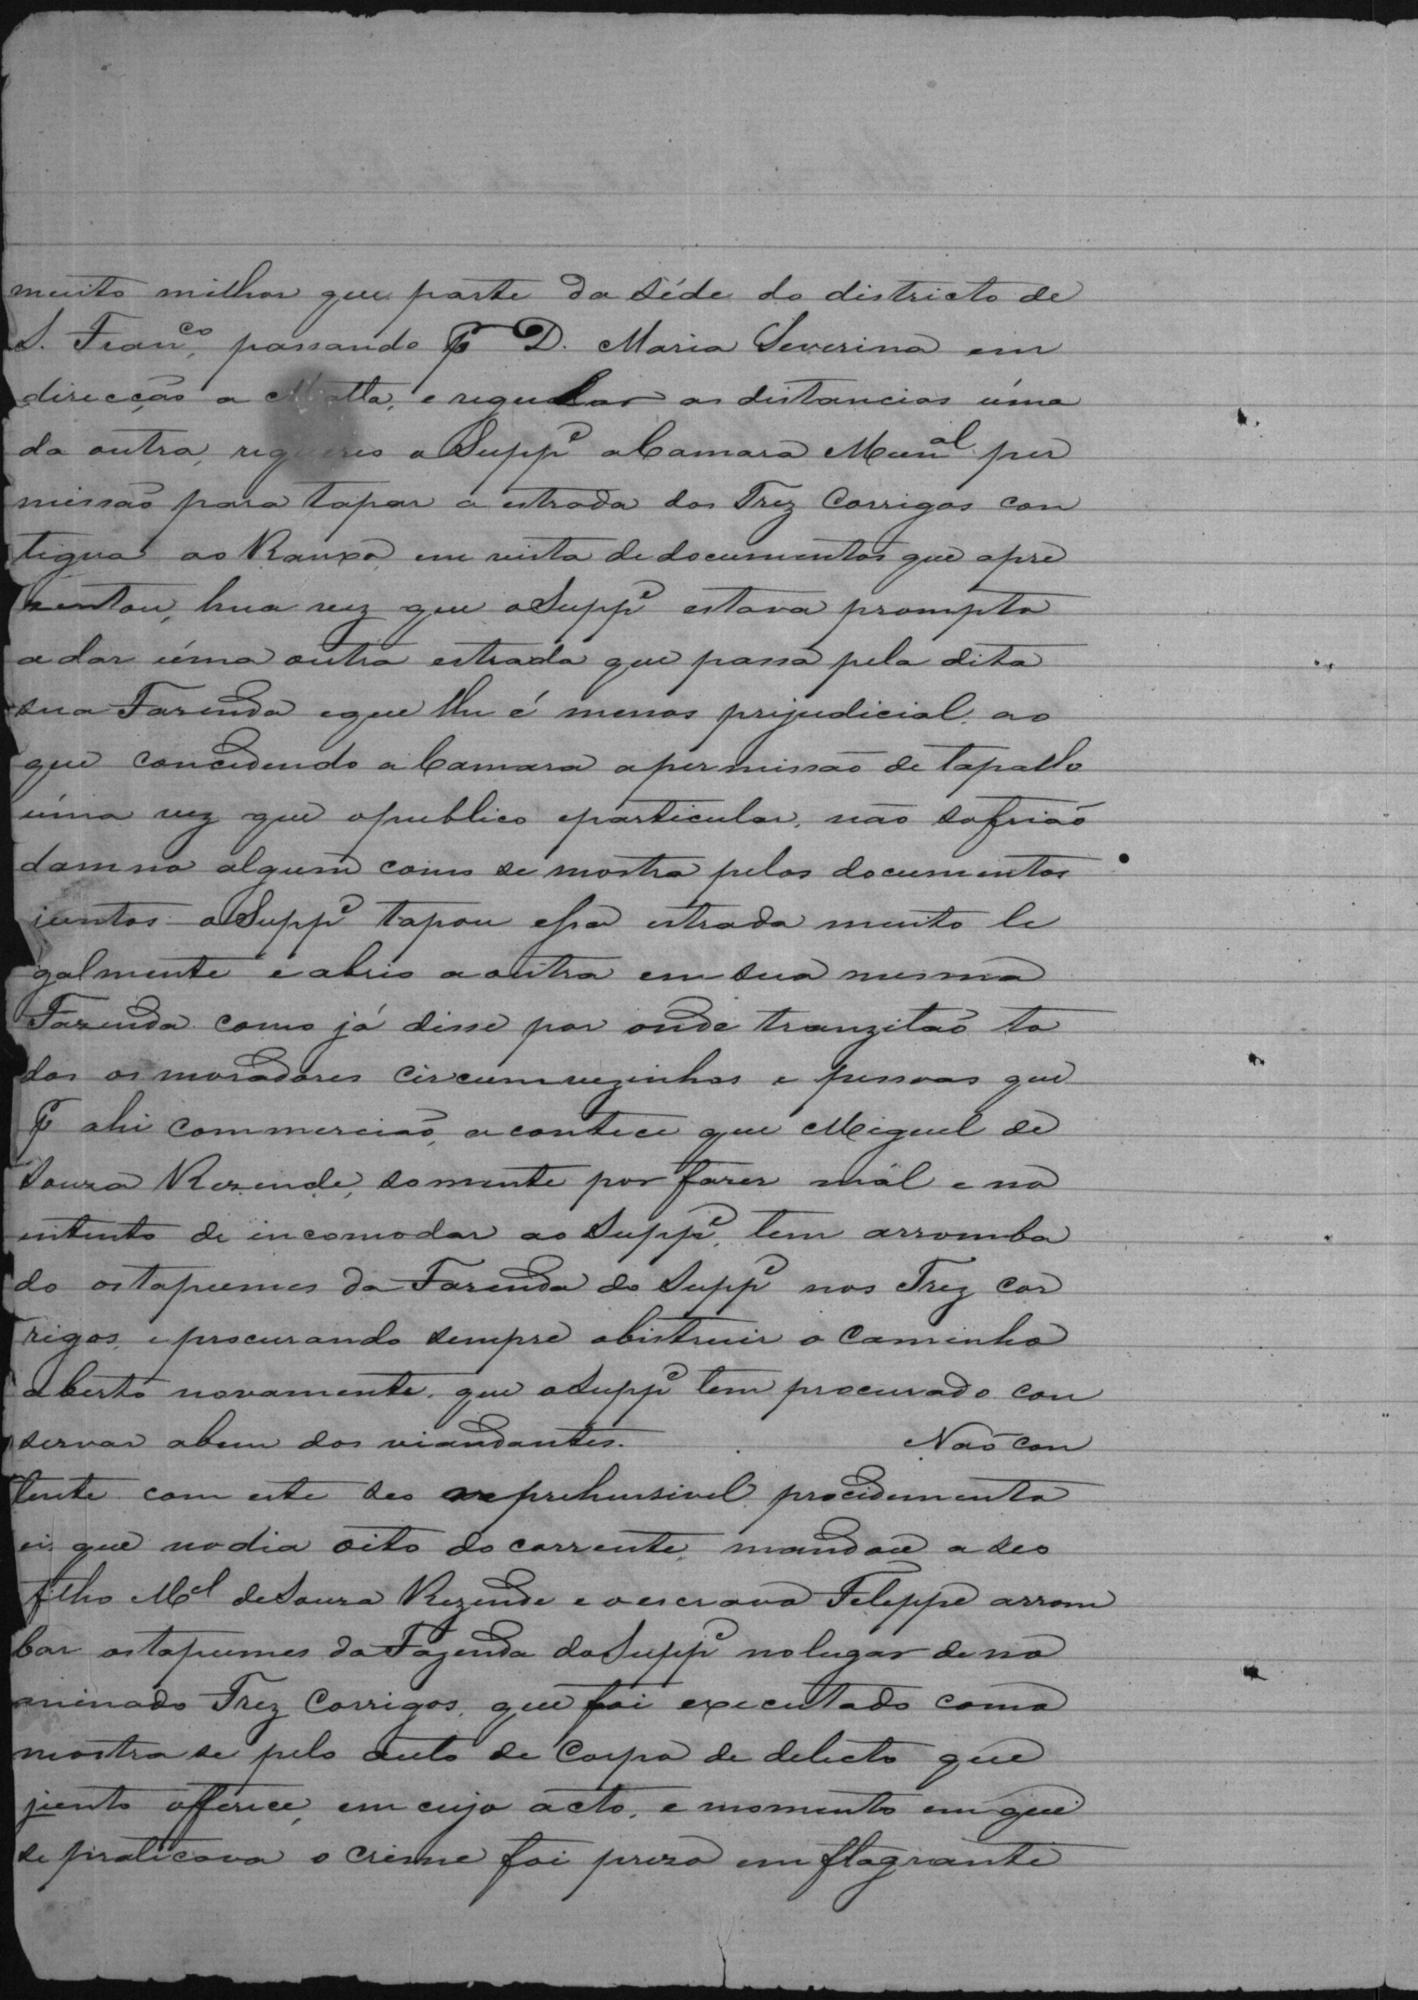 muito milhor que parte da séde do districto de
S. Franco, passando p D. Maria Severina em
direcção a Matta, e regular as distancias úma
da outra, requereo o Suppe a Camara Munal per
missaõ para tapar a estrada dos Trez Corrigos con
tigua ao Ranxo, em vista de documentos que apre
sentou, hua vez que o Suppe estava prompto
a dar úma outra estrada que passa pela dita
sua Fazenda e que lhe é menos prijudicial, ao
que concedendo a Camara a permissaõ de tapallo
úma vez que o publico e particular, naõ sofriaõ
damno algum como se mostra pelos documentos
juntos o Suppe tapou essa estrada muito le
galmente e abrio a outra em sua mesma
Fazenda como já disse por onde tranzitaõ to
dos os moradores circumvezinhos e pessoas que
p ahi commerciaõ, acontece que Miguel de
Souza Rezende, somente por fazer mál e no
intento de incomodar ao Suppe, tem arromba
do os tapumes da Fazenda do Suppe nos Trez Cor
rigos, e procurando sempre obistruir o caminho
aberto novamente, que o Suppe tem procurado con
servar a bem dos viandantes. Naõ con
tente com este seo reprehensivel procidimento
eis que no dia oito do corrente, mandou a seo
filho Mel de Souza Rezende e o escravo Felippe arrom
bar os tapumes da Fazenda do Suppe no lugar deno
minado Trez Corrigos, que foi executado como
mostra se pelo auto de Corpo de delicto que
junto offerece, em cujo acto, e momento em que
se praticava o crime foi prezo em flagrante